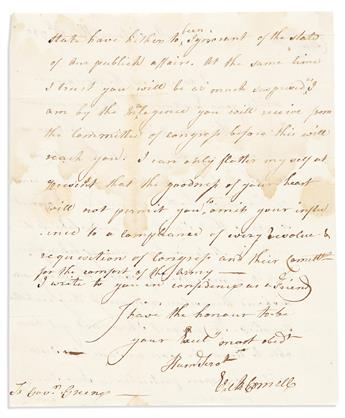 State have hitherto been Ignorant of the state
of our publick affairs. At the same time
I trust you will be as much surprised as
I am by the Inteligence you will receive from
the Committee of Congress before this will
reach you. I can only flatter my self at
present that the goodness of your heart
will not permit you to omit your influ
ence to a compleance of every Resolve &
requisition of Congress and their Committee
for the comfort of the Army —
I write to you in confidence as a Friend
I have the honour to be
your most obdt
Humble
Ezek Cornell
To Govr. Greene